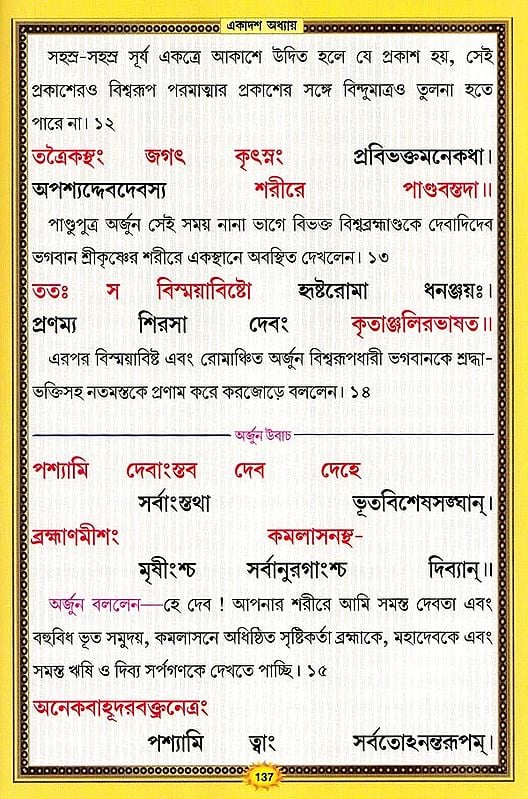 একাদশ অধ্যায়
সহস্র-সহস্র সূর্য একত্রে আকাশে উদিত হলে যে প্রকাশ হয়, সেই
প্রকাশেরও বিশ্বরূপ পরমাত্মার প্রকাশের সঙ্গে বিন্দুমাত্রও তুলনা হতে
পারে না। ১২
তত্রৈকস্থং জগৎ কৃৎস্নং প্রবিভক্তমনেকধা।
অপশ্যদ্দেবদেবস্য শরীরে পাণ্ডবস্তদা॥
পাণ্ডুপুত্র অর্জুন সেই সময় নানা ভাগে বিভক্ত বিশ্বব্রহ্মাণ্ডকে দেবাদিদেব
ভগবান শ্রীকৃষ্ণের শরীরে একস্থানে অবস্থিত দেখলেন। ১৩
ততঃ স বিস্ময়াবিষ্টো হৃষ্টরোমা ধনঞ্জয়ঃ।
প্রণম্য শিরসা দেবং কৃতাঞ্জলিরভাষত॥
এরপর বিস্ময়াবিষ্ট এবং রোমাঞ্চিত অর্জুন বিশ্বরূপধারী ভগবানকে শ্রদ্ধা-
ভক্তিসহ নতমস্তকে প্রণাম করে করজোড়ে বললেন। ১৪
অর্জুন উবাচ
পশ্যামি দেবাংস্তব দেব দেহে
সর্বাংস্তথা ভূতবিশেষসঙ্ঘান্।
ব্রহ্মাণমীশং কমলাসনস্থ-
মৃষীংশ্চ সর্বানুরগাংশ্চ দিব্যান্॥
অর্জুন বললেন—হে দেব ! আপনার শরীরে আমি সমস্ত দেবতা এবং
বহুবিধ ভূত সমুদয়, কমলাসনে অধিষ্ঠিত সৃষ্টিকর্তা ব্রহ্মাকে, মহাদেবকে এবং
সমস্ত ঋষি ও দিব্য সর্পগণকে দেখতে পাচ্ছি। ১৫
অনেকবাহূদরবক্ত্রনেত্রং
পশ্যামি ত্বাং সর্বতোঽনন্তরূপম্।
137